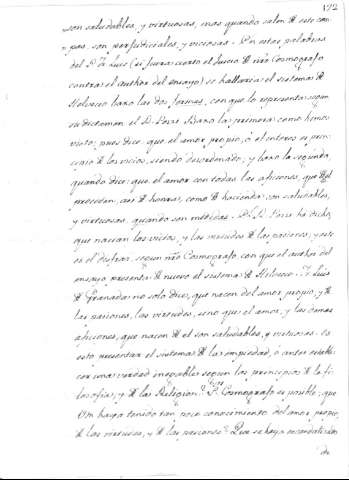 172
son saludables, y virtuosas, mas quando salen de este com-
pas, son perjudiciales, y viciosas. En estas palabras
del P. Fr. Luis (si fuera cierto el Juicio de nro Cosmografo
contra el author del ensayo) se hallaria el sistema de
Helvecio baxo las dos formas, con que lo representa: segun
su dictamen el P. baxo la primera como hemos
visto; pues dice, que el amor propio, ó el interes es prin-
cipio de los vicios, siendo desordenado; y baxo la segunda,
quando dice: que el amor con todas las aficiones, que del
proceden, asi de honras, como de hacienda son saludables,
y virtuosas, quando son medidas. ha dicho,
que nacian los vicios, y las virtudes de las pasiones; y este
es el disfraz, segun nro Cosmografo con que el author del
ensayo presenta de nuevo el sistema de Helvecio. Fr. Luis
de Granada no solo dice, que nacen del amor propio, y de
las pasiones, las virtudes, sino que el amor, y las demas
aficiones, que nacen de el son saludables, y virtuosas. Es
esto presentar el sistema de la impiedad, ó antes estable-
cer una verdad innegable segun los principios de la fi-
losofia, y de la Religion? Sr. Cosmografo es posible, que
Vm haya tenido tan poco conocimiento del amor propio,
de las virtudes, y de las pasiones? Que se haya escandalizado
de